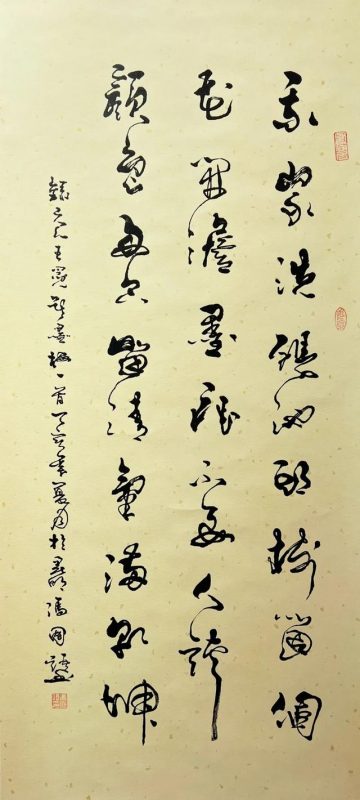 我家洗硯池頭樹箇個
花開澹墨痕不要人誇
顏色好只留清氣滿乾坤
錄元人王冕墨梅一首年夏月於馮國語